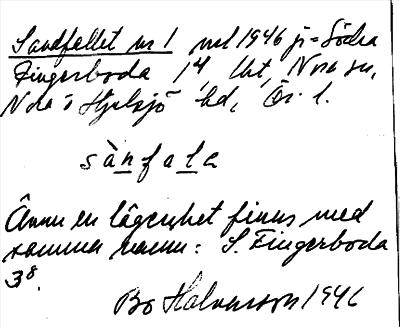 Sandfallet nr 1 nel 1946 ji = Södra
Fingerboda 1⁴, lht, Nora sn,
Nora o Hjulsjö hd, Ör. l.
sànfala
Ännu en lägenhet finns med
samma namn: S. Fingerboda
3⁸.
Bo Halvarson 1946